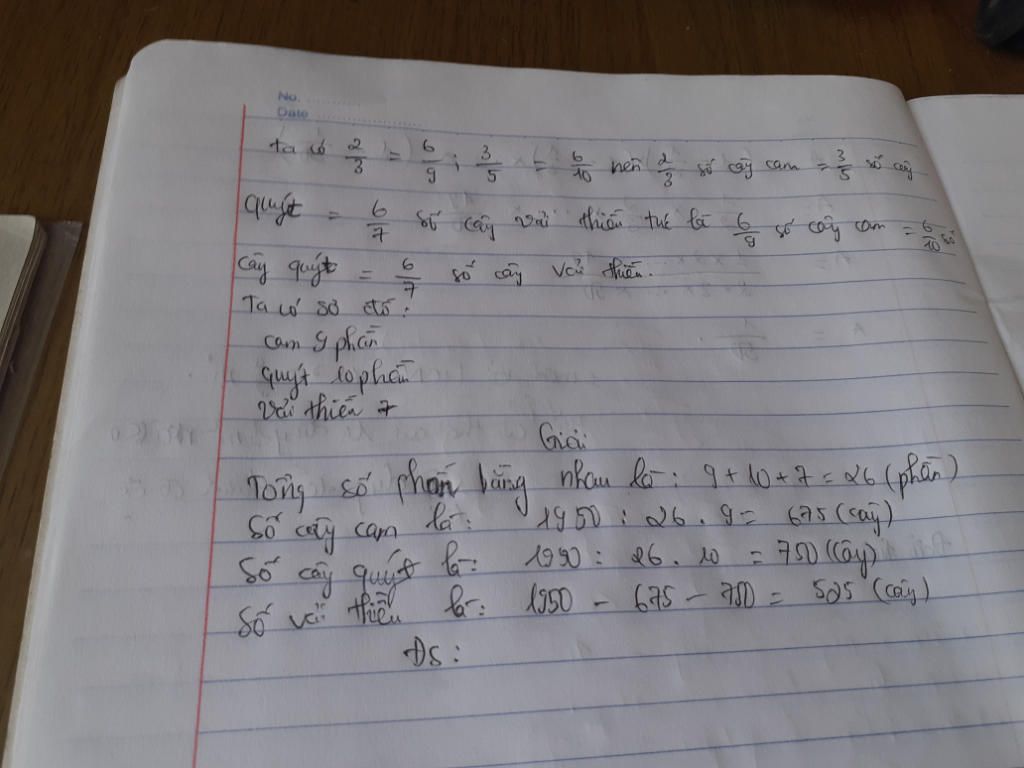 No. ............
Date ............
ta có 2/3 = 6/9 ; 3/5 = 6/10 nên 2/3 số cây cam = 3/5 số cây
quýt = 6/7 số cây vải thiều tức là 6/9 số cây cam = 6/10 số
cây quýt = 6/7 số cây vải thiều.
Ta có sơ đồ:
cam 9 phần
quýt 10 phần
vải thiều 7
Giải
Tổng số phần bằng nhau là: 9 + 10 + 7 = 26 (phần)
Số cây cam là: 1950 : 26 . 9 = 675 (cây)
Số cây quýt là: 1950 : 26 . 10 = 750 (cây)
Số vải thiều là: 1950 - 675 - 750 = 525 (cây)
Đs: